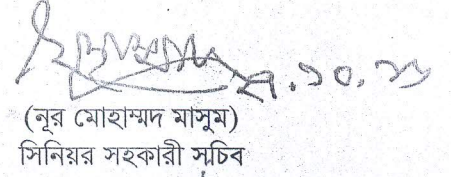 (নূর মোহাম্মদ মাসুম)
সিনিয়র সহকারী সচিব